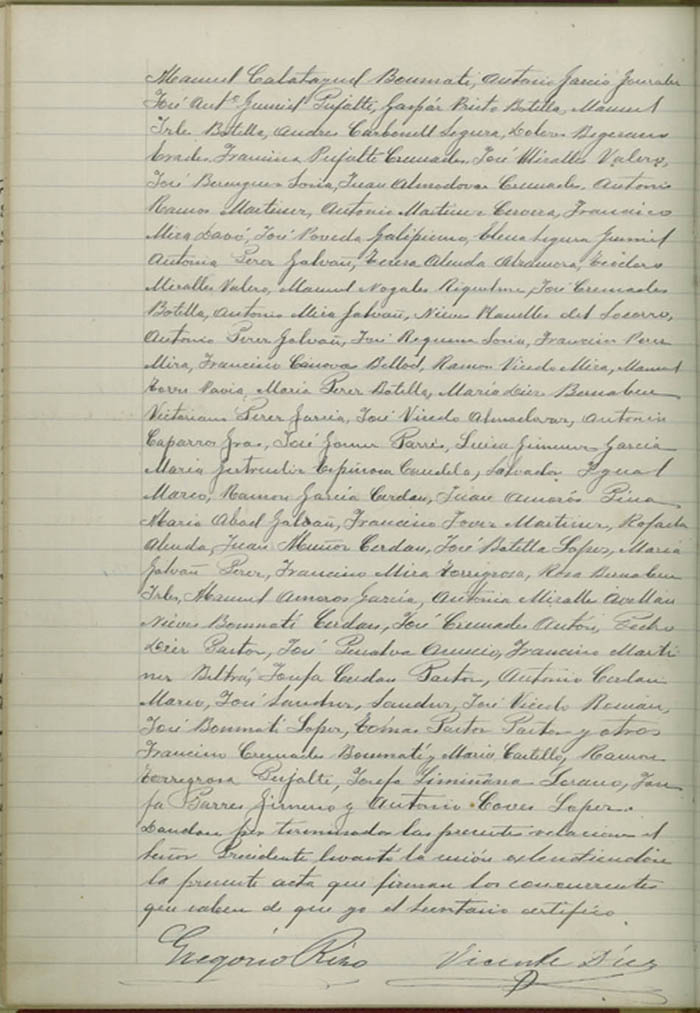 Manuel Calatayud Bonmati, Antonio García Gonzalez
José Antº Gumiel Pujalte, Gaspár Brieto Botella, Manuel
Irles Botella, Andres Carbonell Segura, Dolores
Francisca Pujalte Cremades, José Miralles Valero,
José Berenguer Soria, Juan Almodovar Cremades, Antonio
Ramos Martinez, Antonio Martinez Cervera, Francisco
Mira Davó, José Poveda Galipienso, Elena Segura Gumiel
Antonia Perez Galvañ, Teresa Alenda Teodoro
Miralles Valero, Manuel Nogales Riquelme, José Cremades
Botella, Antonio Mira Galvañ, Nieves Planelles del Socorro,
Antonio Perez Galvañ, José Requena Soria, Francisco Perez
Mira, Francisco Cánovas Bellod, Ramon Vicedo Mira, Manuel
Torres Pavia, Maria Perez Botella, Maria Diez Bernabeu
Victoriano Perez Garcia, José Vicedo Almodovar, Antonio
Caparros Gras, José Gomez Parres, Luisa Gimenez García
Maria Gertrudis Espinosa Candela, Salvador Igual
Marco, Ramon García Cerdan, Juan Amorós Pina
Maria Abad Galvañ, Francisco Tovar Martinez, Rafaela
Alenda, Juan Muñoz Cerdan, José Botella Lopez, Maria
Galvañ Perez, Francisco Mira Torregrosa, Rosa Bernabeu
Irles, Manuel Amoros García, Antonia Miralles Avellan
Nieves Bonmatí Cerdan, José Cremades Antón, Pedro
Diez Pastor, José Penalva Asencio, Francisco Marti
nez Beltrá, Josefa Cerdan Pastor, Antonio Cerdan
Marco, José Sanchez, Sanchez, José Vicedo Román,
José Bonmati Lopez, Tómas Pastor Pastor y otros
Francisco Cremades Bonmatí y Maria Castillo, Ramon
Torregrosa Pujalte, Josefa Limiñana Lozano, Jose
fa Parres Gimeno y Antonio Coves Lopez.
Dandose por terminadas las presente relaciones el
Señor Presidente levantó la sesión extendiendose
la presente acta que firman los concurrentes
que saben de que yo el Secretario certifico.
Gregorio Rizo Vicente Díez